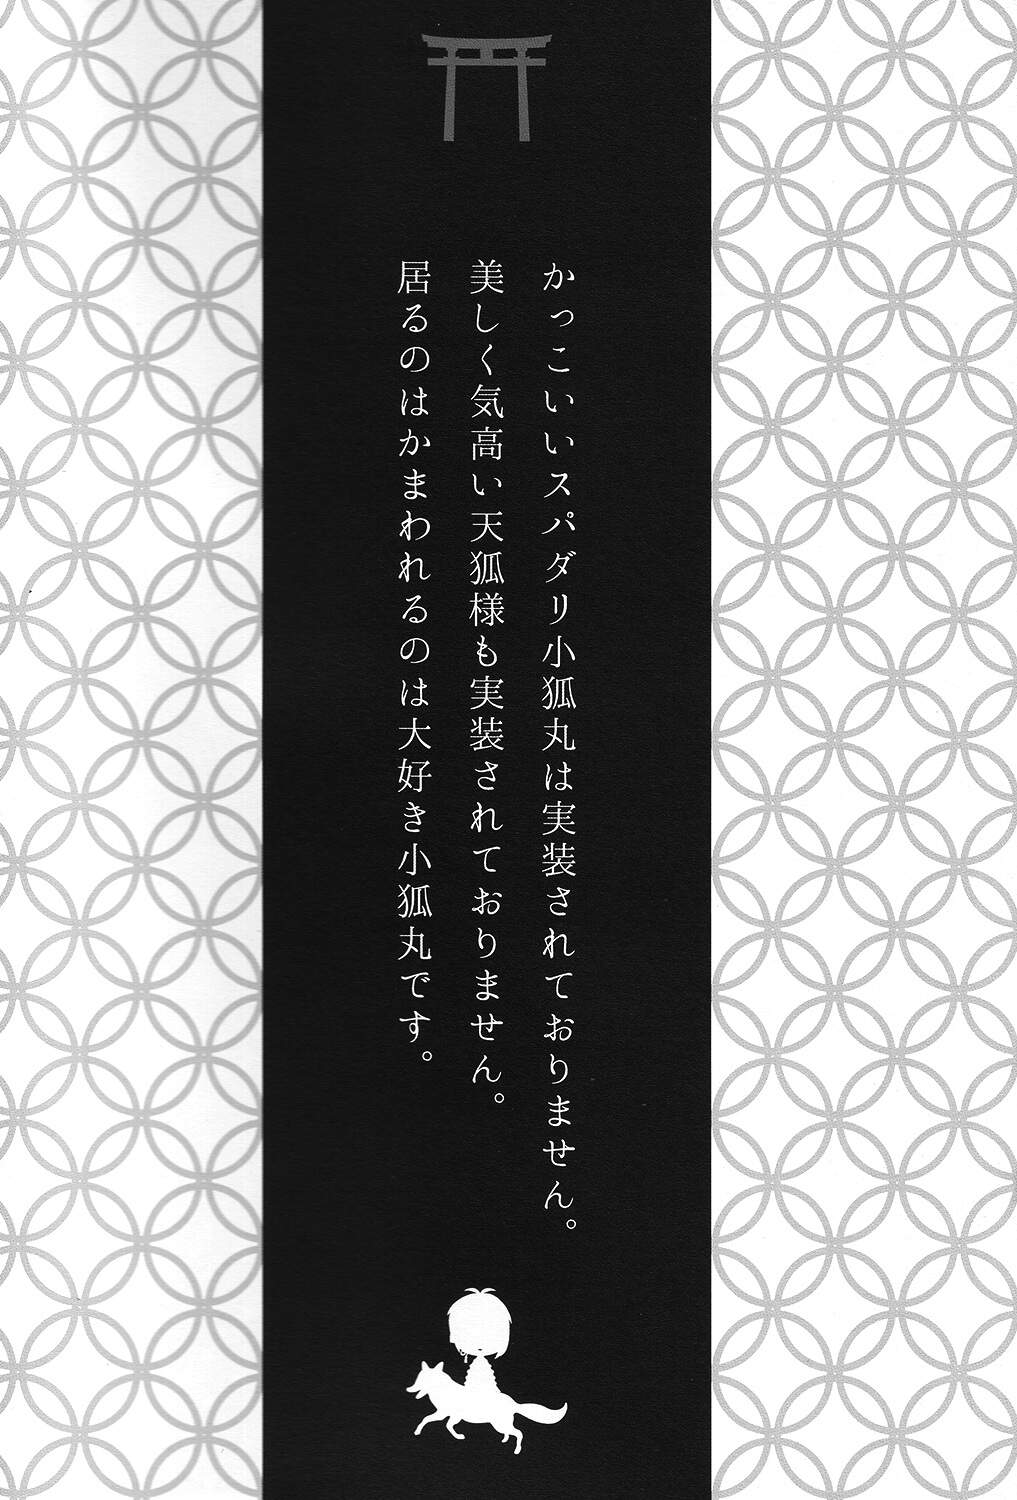 かっこいいスパダリ小狐丸は実装されておりません。
美しく気高い天狐様も実装されておりません。
居るのはかまわれるのは大好き小狐丸です。